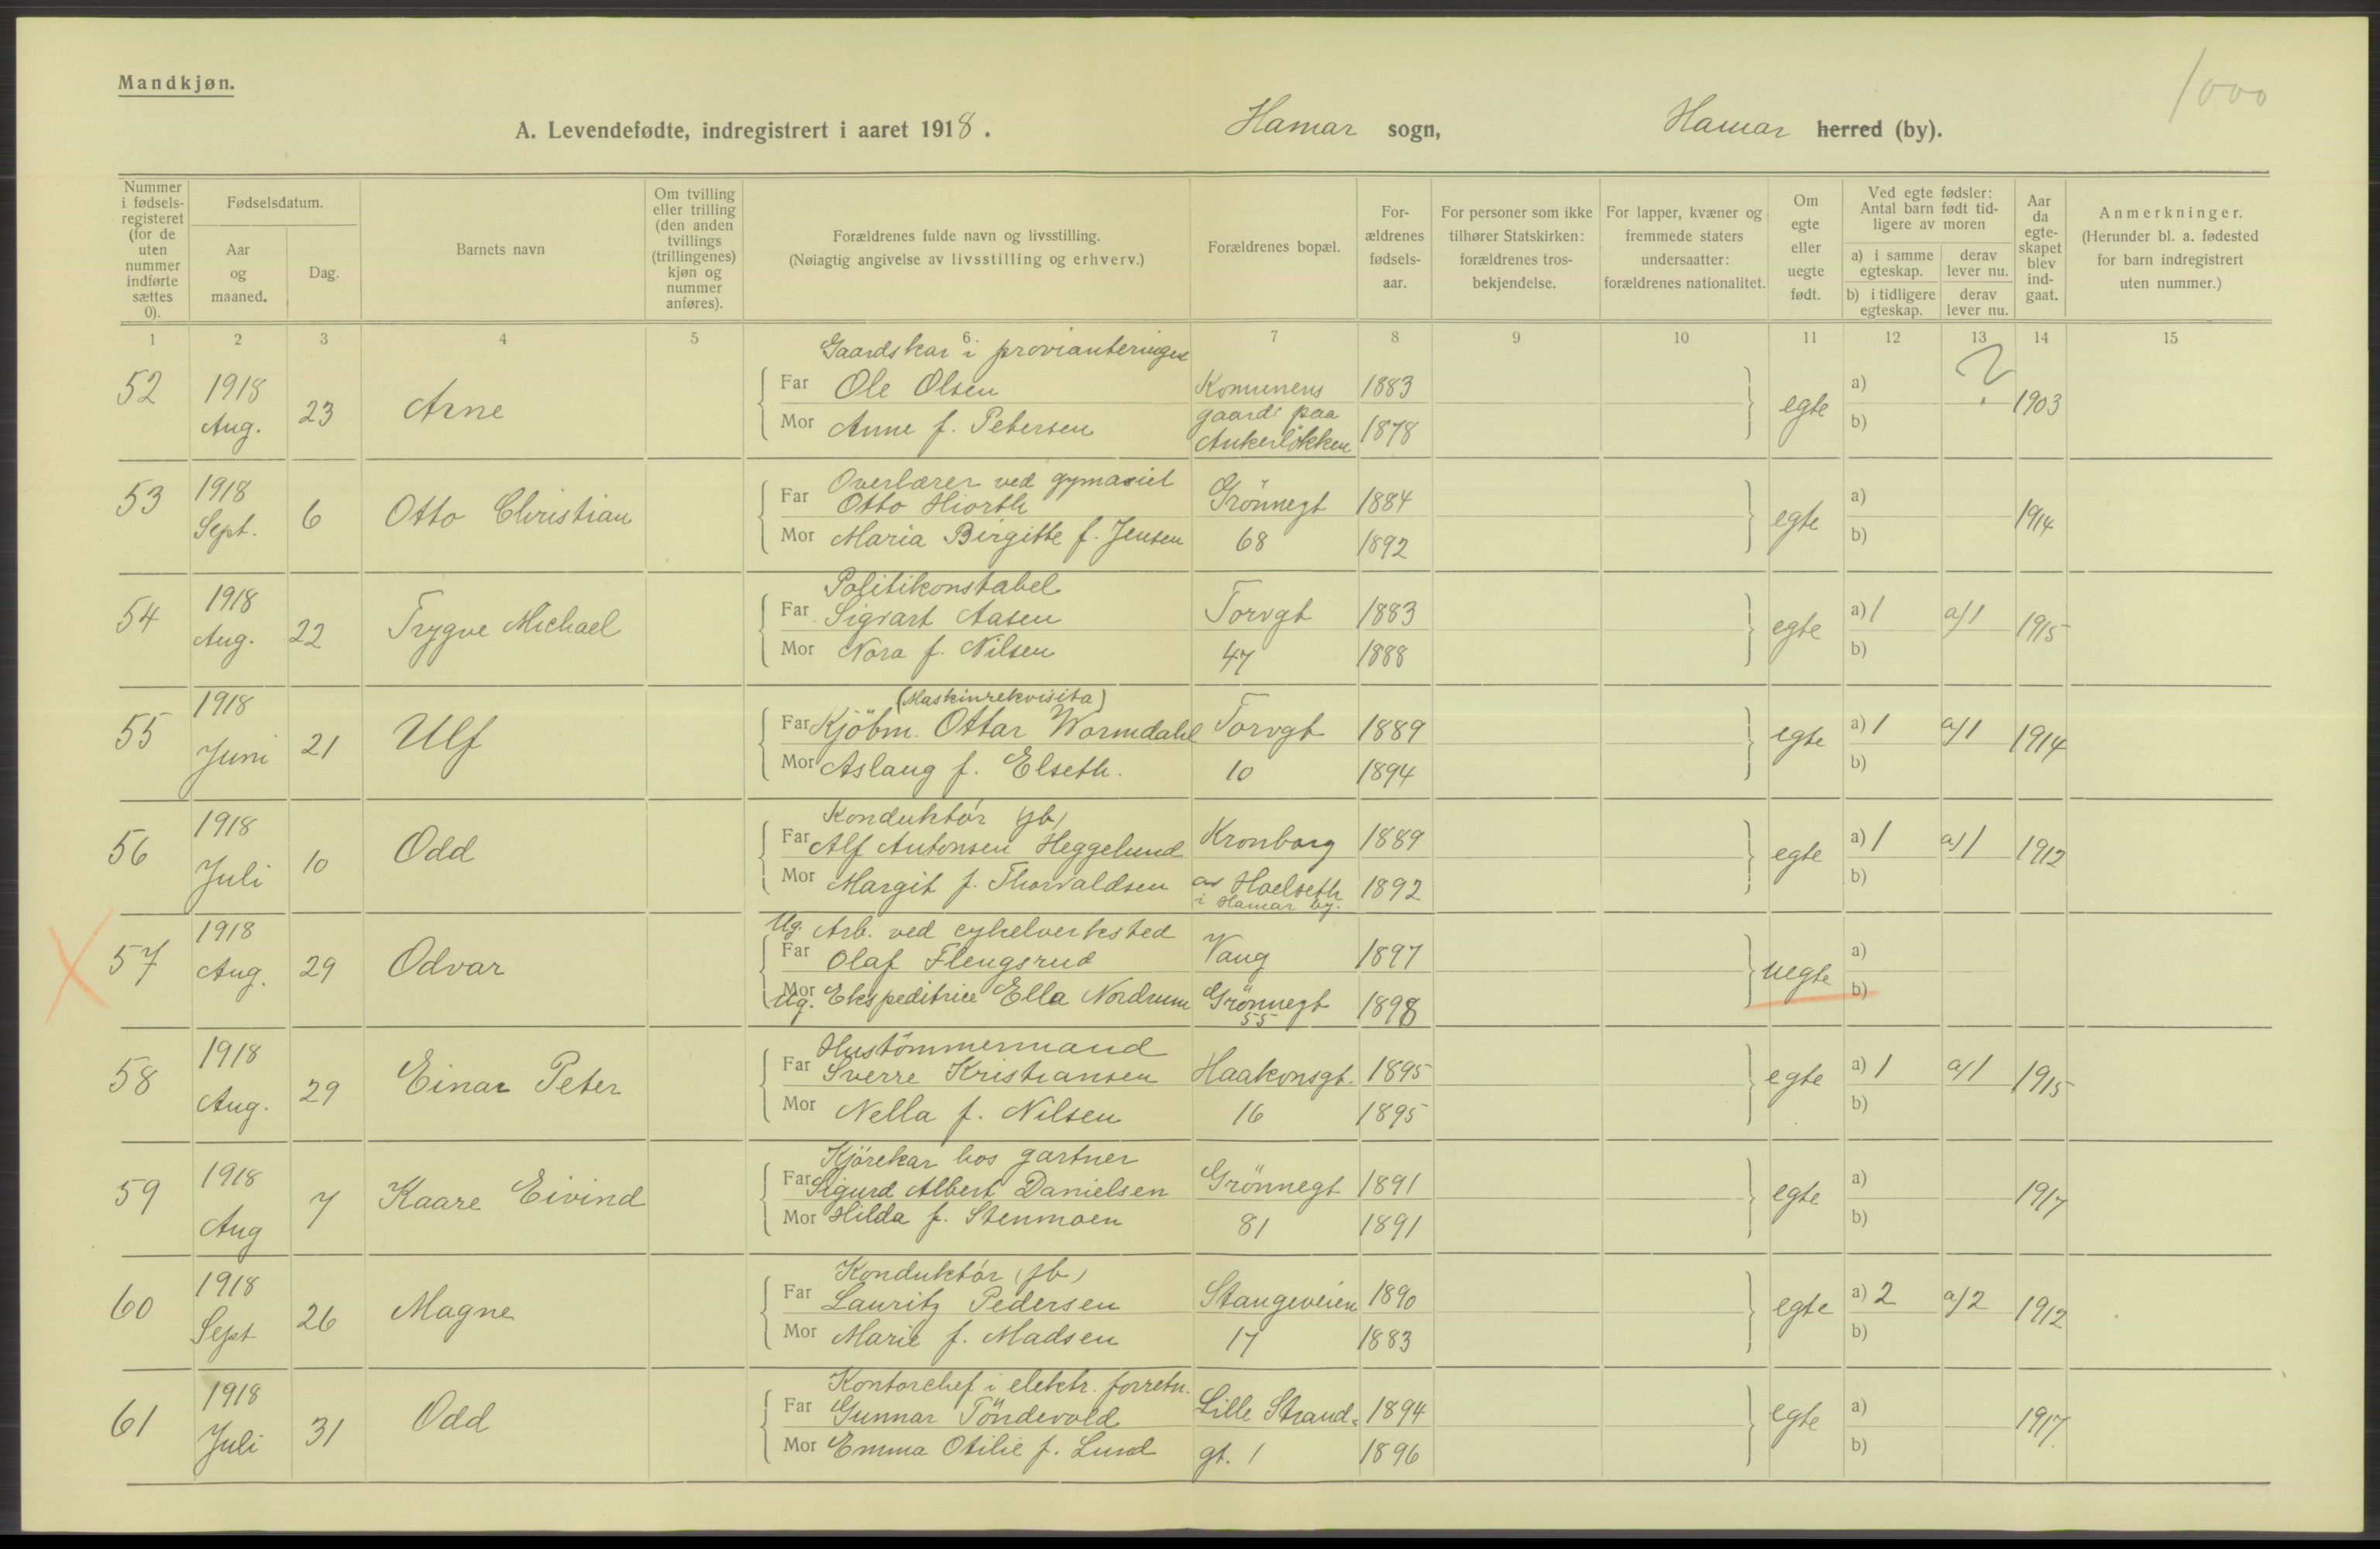 Mandkjøn.
1000
A. Levendefødte, indregistrert i aaret 1918. Hamar sogn, Hamar herred (by).
Nummer i fødsels-registeret (for de uten nummer indførte sættes 0).
Fødselsdatum.
Aar og maaned.
Dag.
Barnets navn
Om tvilling eller trilling (den anden tvillings (trillingenes) kjøn og nummer anføres).
Forældrenes fulde navn og livsstilling.
(Nøiagtig angivelse av livsstilling og erhverv.)
Forældrenes bopæl.
For-ældrenes fødsels-aar.
For personer som ikke tilhører Statskirken: forældrenes tros-bekjendelse.
For lapper, kvæner og fremmede staters undersaatter: forældrenes nationalitet.
Om egte eller uegte født.
Ved egte fødsler: Antal barn født tid-ligere av moren
a) i samme egteskap. derav lever nu.
b) i tidligere egteskap. derav lever nu.
Aar da egte-skapet blev ind-gaat.
Anmerkninger.
(Herunder bl. a. fødested for barn indregistrert uten nummer.)
1 2 3 4 5 6 7 8 9 10 11 12 13 14 15
Gaardskar i provianteringen
52 1918 Aug. 23 Arne Far Ole Olsen Komunens 1883 egte a) ? 1903
Mor Anne f. Petersen gaard paa Ankerløkken 1878 b)
Overlærer ved gymasiet
53 1918 Sept. 6 Otto Christian Far Otto Hiorth Grönnegt 1884 egte a) 1914
Mor Maria Birgitte f. Jensen 68 1892 b)
Politikonstabel
54 1918 Aug. 22 Trygve Michael Far Sigvart Aasen Torvgt 1883 egte a) 1 a/1 1915
Mor Nora f. Nilsen 47 1888 b)
(Maskinrekvisita)
55 1918 Juni 21 Ulf Far Kjöbm. Ottar Wormdahl Torvgt 1889 egte a) 1 a/1 1914
Mor Aslaug f. Elseth. 10 1894 b)
Konduktör (jb)
56 1918 Juli 10 Odd Far Alf Antonsen Heggelund Kronborg 1889 egte a) 1 a/1 1912
Mor Margit f. Thorvaldsen av Hoelseth i Hamar by. 1892 b)
Ug. Arb. ved cykelverksted
57 1918 Aug. 29 Odvar Far Olaf Flengsrud Vang 1897 uegte a)
Mor Ug. Ekspeditrice Ella Nordrum Grönnegt 55 1898 b)
Hustömmermand
58 1918 Aug. 29 Einar Peter Far Sverre Kristiansen Haakonsgt. 1895 egte a) 1 a/1 1915
Mor Nella f. Nilsen 16 1895 b)
Kjörekar hos gartner
59 1918 Aug 7 Kaare Eivind Far Sigurd Albert Danielsen Grönnegt 1891 egte a) 1917
Mor Hilda f. Stenmoen 81 1891 b)
Konduktör (jb)
60 1918 Sept 26 Magne Far Lauritz Pedersen Stangeveien 1890 egte a) 2 a/2 1912
Mor Marie f. Madsen 17 1883 b)
Kontorchef i elektr. forretn.
61 1918 Juli 31 Odd Far Gunnar Töndevold Lille Strand- 1894 egte a) 1917
Mor Emma Otilie f. Lund gt. 1 1896 b)